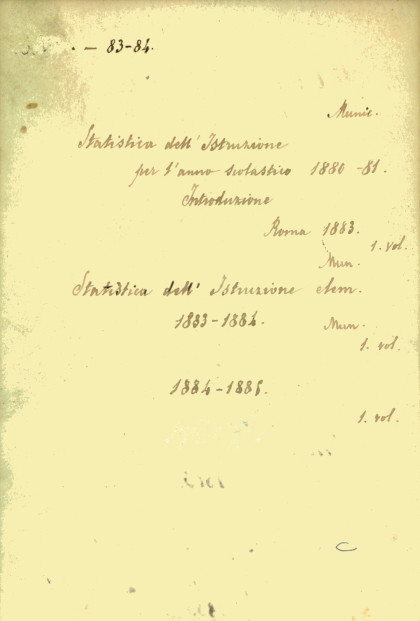 — 83-84.
Munic.
Statistica dell' Istruzione
per l'anno scolastico 1880-81.
Introduzione
Roma 1883.
1. vol.
Mun.
Statistica dell' Istruzione elem.
1833-1884.
Mun.
1. vol.
1884-1885.
1. vol.